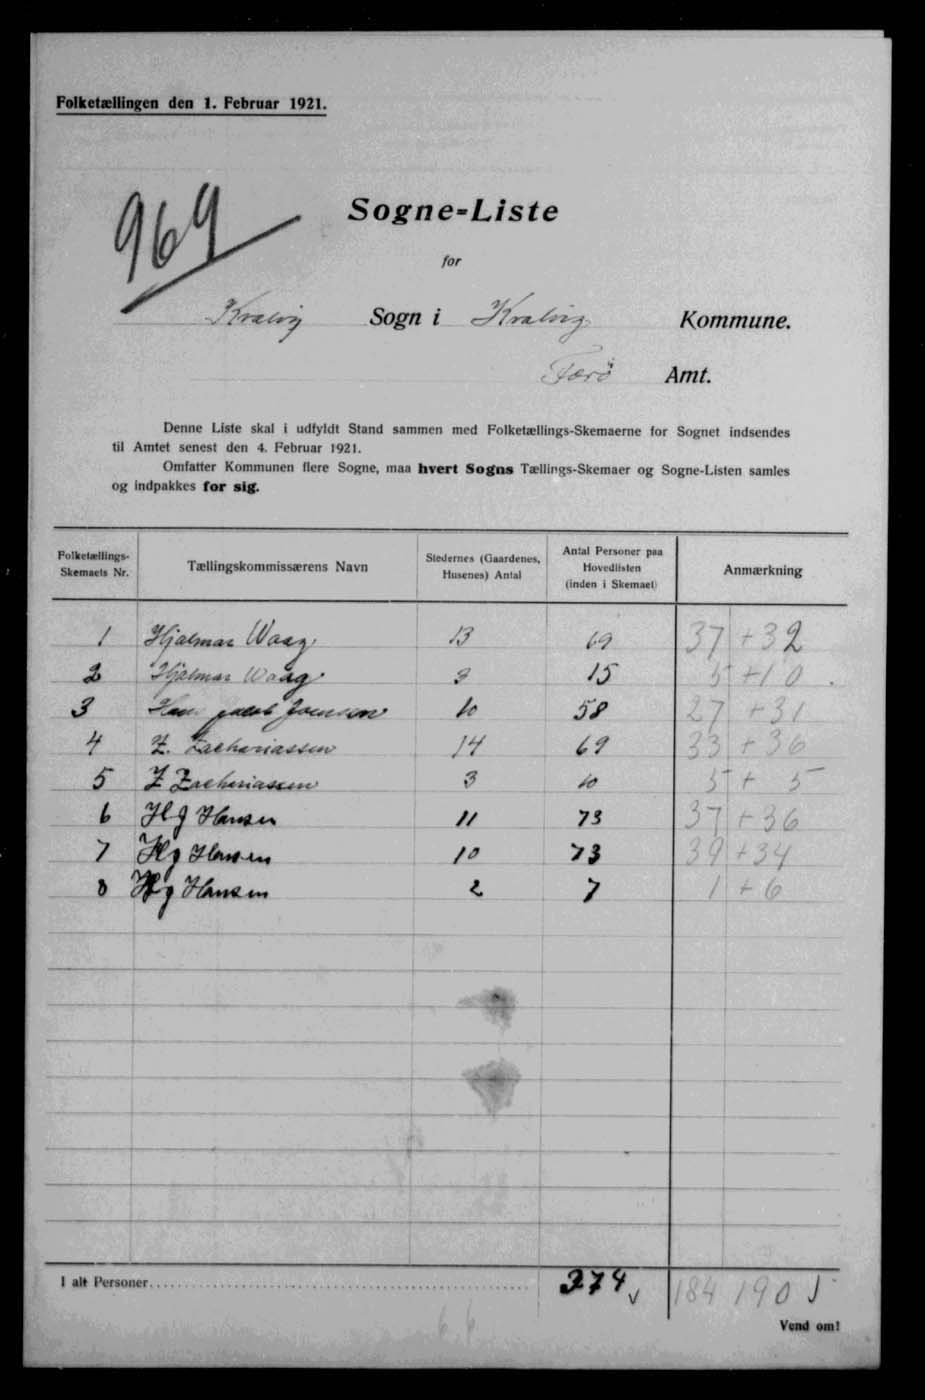 Folketællingen den 1. Februar 1921.
969
Sogne=Liste
for
Kvalvig Sogn i Kvalvig Kommune.
Færö Amt.
Denne Liste skal i udfyldt Stand sammen med Folketællings-Skemaerne for Sognet indsendes
til Amtet senest den 4. Februar 1921.
Omfatter Kommunen flere Sogne, maa hvert Sogns Tællings-Skemaer og Sogne-Listen samles
og indpakkes for sig.
Folketællings-Skemaets Nr. Tællingskommissærens Navn Stedernes (Gaardenes, Husenes) Antal Antal Personer paa Hovedlisten (inden i Skemaet) Anmærkning
1 Hjalmar Waag 13 69 37 + 32
2 Hjalmar Waag 3 15 5 + 10
3 Hans Jacob Joensen 10 58 27 + 31
4 Z. Zachariassen 14 69 33 + 36
5 Z Zachariassen 3 10 5 + 5
6 H J Hansen 11 73 37 + 36
7 H J Hansen 10 73 39 + 34
8 H J Hansen 2 7 1 + 6
I alt Personer 374 184 190
66
Vend om!